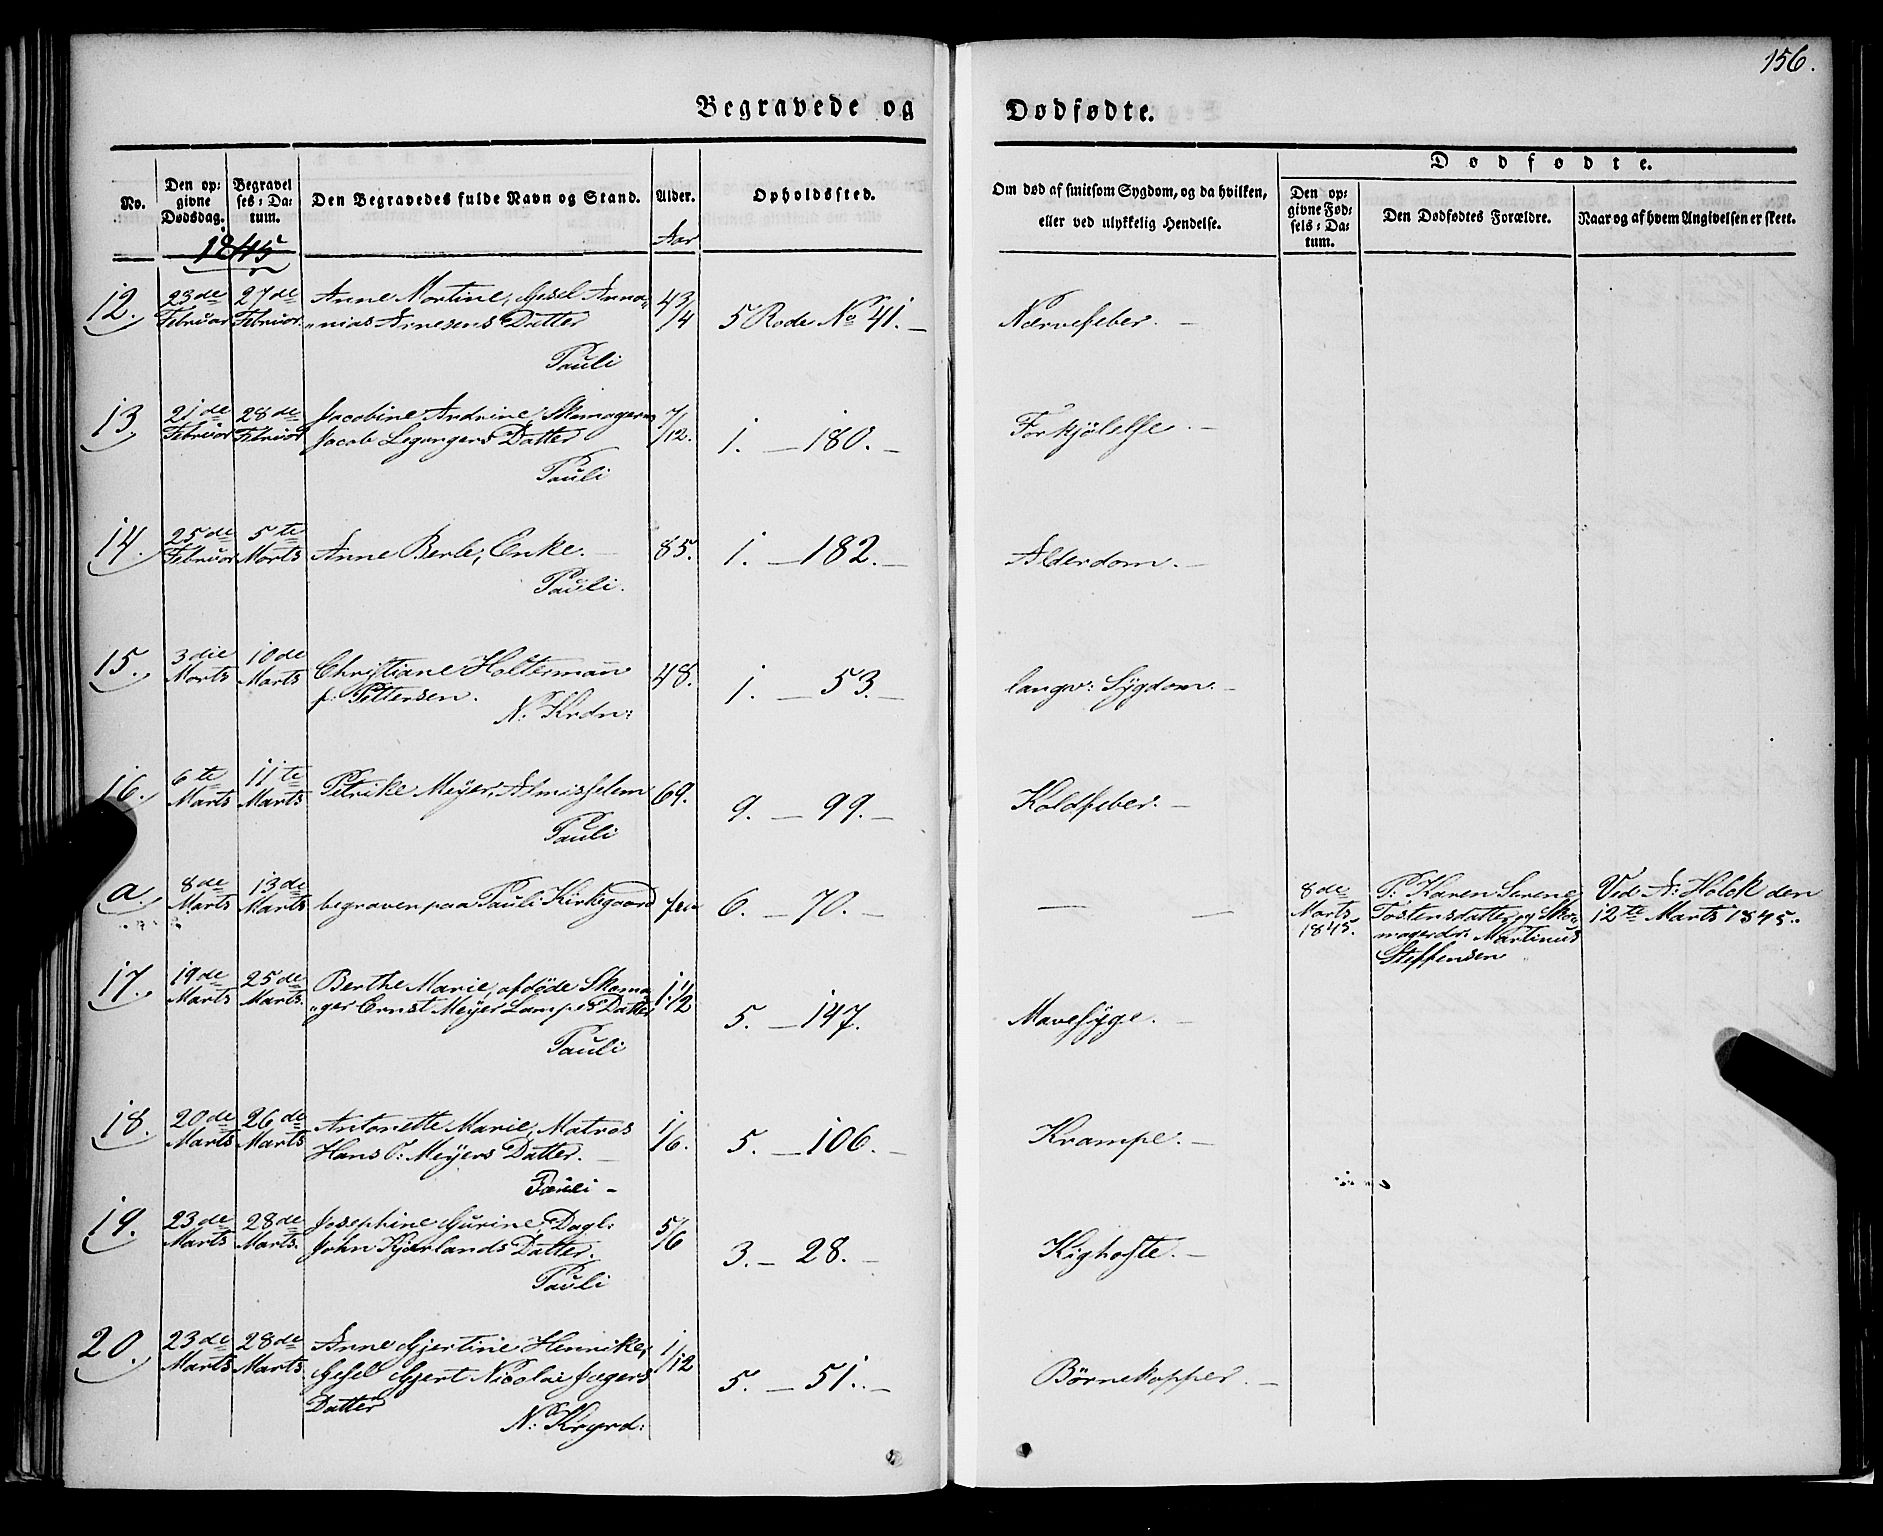 156.
Begravede og Dødfødte.
No.
Den opgivne Dødsdag.
Begravelses-Datum.
Den Begravedes fulde Navn og Stand.
Alder.
Opholdssted.
Om død af smitsom Sygdom, og da hvilken,
eller ved ulykkelig Hendelse.
Dødfødte.
Den opgivne Fødsels-Datum.
Den Dødfødtes Forældre.
Naar og af hvem Angivelsen er skeet.
1845
Aar
12. 23de Februar 27de Februar Anne Martine, Gesel Anna= 4 3/4 5 Rode No 41. — Nervefeber. —
"nias Arnesens Datter
Pauli
13 21de Februar 28de Februar Jacobine Andrine, Skomager 7/12. 1. — 180. — Forkjølelse. —
Jacob Legangers Datter
Pauli
14. 25de Februar 5te Marts Anne Berle, Enke. — 85. 1. — 182. — Alderdom. —
Pauli.
15. 3die Marts 10de Marts Christiane Holtermann 48. 1. — 53. — langv: Sygdom. —
f. Pettersen.
N: Krdn:
16. 6te Marts 11te Marts Petrike Meyer, Almisselem 69. 9. — 99. — Koldfeber. —
Pauli
a. 8de Marts 13de Marts begraven paa Pauli Kirkegaard fri 6. — 70. — — — 8de Marts 1845. P: Karen Serene
Tostensdatter og Sko=
magerdr: Martinus
Steffensen
Ved A: Holck den
12te Marts 1845.
17. 19de Marts 25de Marts. Berthe Marie, afdøde Skoma= 1 1/2 5. — 147. Mavesyge. —
"ger Ernst Meyer Lampes Datter
Pauli
18. 20de Marts 26de Marts Antonette Marie, Matros 1/6. 5. — 106. — Krampe. —
Hans O: Meyers Datter. —
Pauli —
19. 23de Marts 28de Marts. Josephine Gurine, Dagl: 5/6 3. — 28. — Kighoste. —
John Kjærlands Datter.
Pauli
20. 23de Marts 28de Marts. Anne Gjertine Henrike, 1/12 5. — 51. — Børnekopper. —
Gesel Gjert Nicolai Jægers
Datter
N: Krgrd: